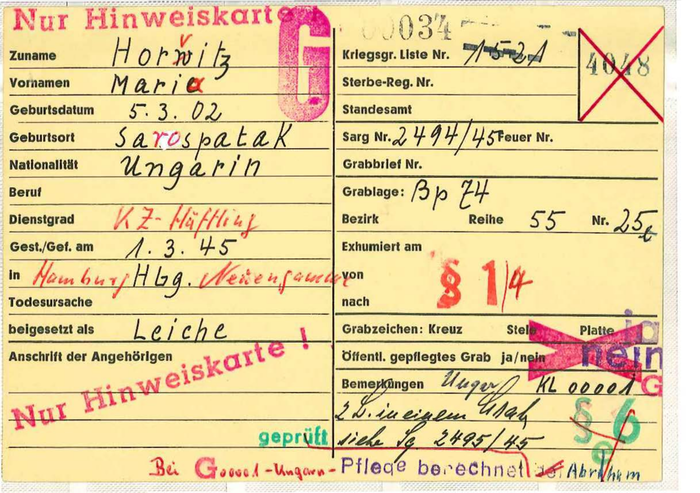 Nur Hinweiskarte !
G
00034
Zuname Horwitz
v
Kriegsgr. Liste Nr. 1521
4048
Vornamen Maria
Sterbe-Reg. Nr.
Geburtsdatum 5.3.02
Standesamt
Geburtsort Sarospatak
Sarg Nr. 2494/45 Feuer Nr.
Nationalität Ungarin
Grabbrief Nr.
Beruf
Grablage: Bp 74
Dienstgrad KZ-Häftling
Bezirk Reihe 55 Nr. 25
Gest./Gef. am 1.3.45
Exhumiert am
in Hamburg Hbg. Neuengamme
von
§ 1/4
Todesursache
nach
beigesetzt als Leiche
Grabzeichen: Kreuz Stele Platte
ja
Anschrift der Angehörigen
Öffentl. gepflegtes Grab ja/nein
nein
Nur Hinweiskarte !
Bemerkungen Ungar KL 00001
G
2 L. in einem Grab
§ 6
geprüft
siehe Sg. 2495/45
Bei G00001-Ungarn- Pflege berechnet Abraham